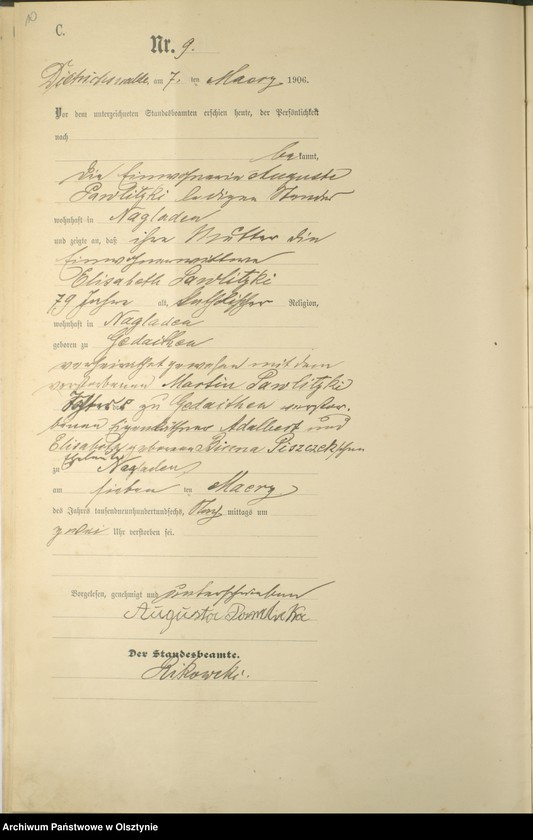 10
C.
Nr. 9.
Dietrichswalde, am 7. ten Maerz 1906.
Vor dem unterzeichneten Standesbeamten erschien heute, der Persönlichkeit
nach
bekannt,
die Einwohnerin Auguste
Pawlitzki ledigen Standes
wohnhaft in Nagladen
und zeigte an, daß ihre Mutter die
Einwohnerwittwe
Elisabeth Pawlitzki
79 Jahre alt, katholischer Religion,
wohnhaft in Nagladen
geboren zu Gedaithen
verheirathet gewesen mit dem
verstorbenen Martin Pawlitzki
Tochter der zu Gedaithen verstor-
benen Adalbert und
Elisabeth geborenen Piszczek'schen
Eheleute
zu Nagladen
am sieben ten Maerz
des Jahres tausendneunhundertundsechs, Nachmittags um
zwei Uhr verstorben sei.
Vorgelesen, genehmigt und unterschrieben
Augusta Pawlicka
Der Standesbeamte.
Rikowski.
Archiwum Państwowe w Olsztynie